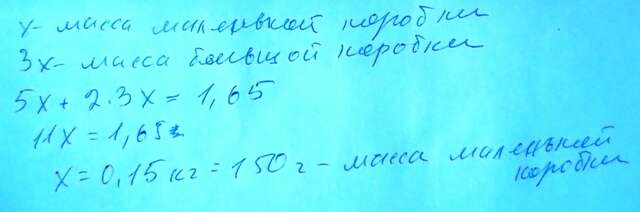 x - масса маленькой коробки
3x - масса большой коробки
5x + 2·3x = 1,65
11x = 1,65
x = 0,15 кг = 150 г - масса маленькой
коробки